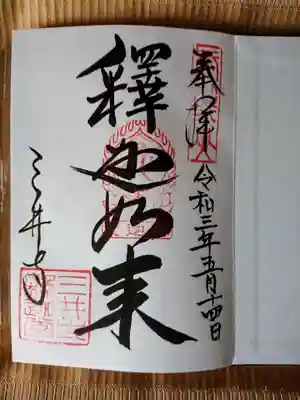 奉拝
令和三年五月十四日
釋迦如来
三井寺